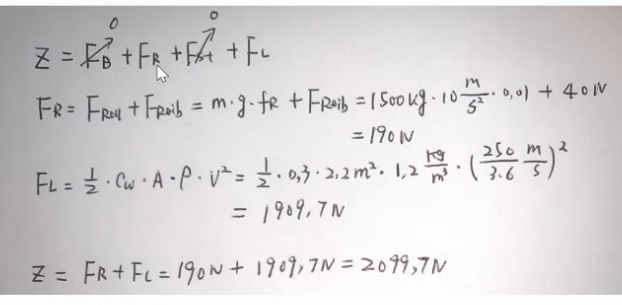 0 0
Z = F_B + F_R + F_St + F_L
F_R = F_Roll + F_Reib = m · g · f_R + F_Reib = 1500 kg · 10 m/s² · 0,01 + 40 N
= 190 N
F_L = 1/2 · C_w · A · ρ · V² = 1/2 · 0,3 · 2,2 m² · 1,2 kg/m³ · (250/3.6 m/s)²
= 1909,7 N
Z = F_R + F_L = 190 N + 1909,7 N = 2099,7 N